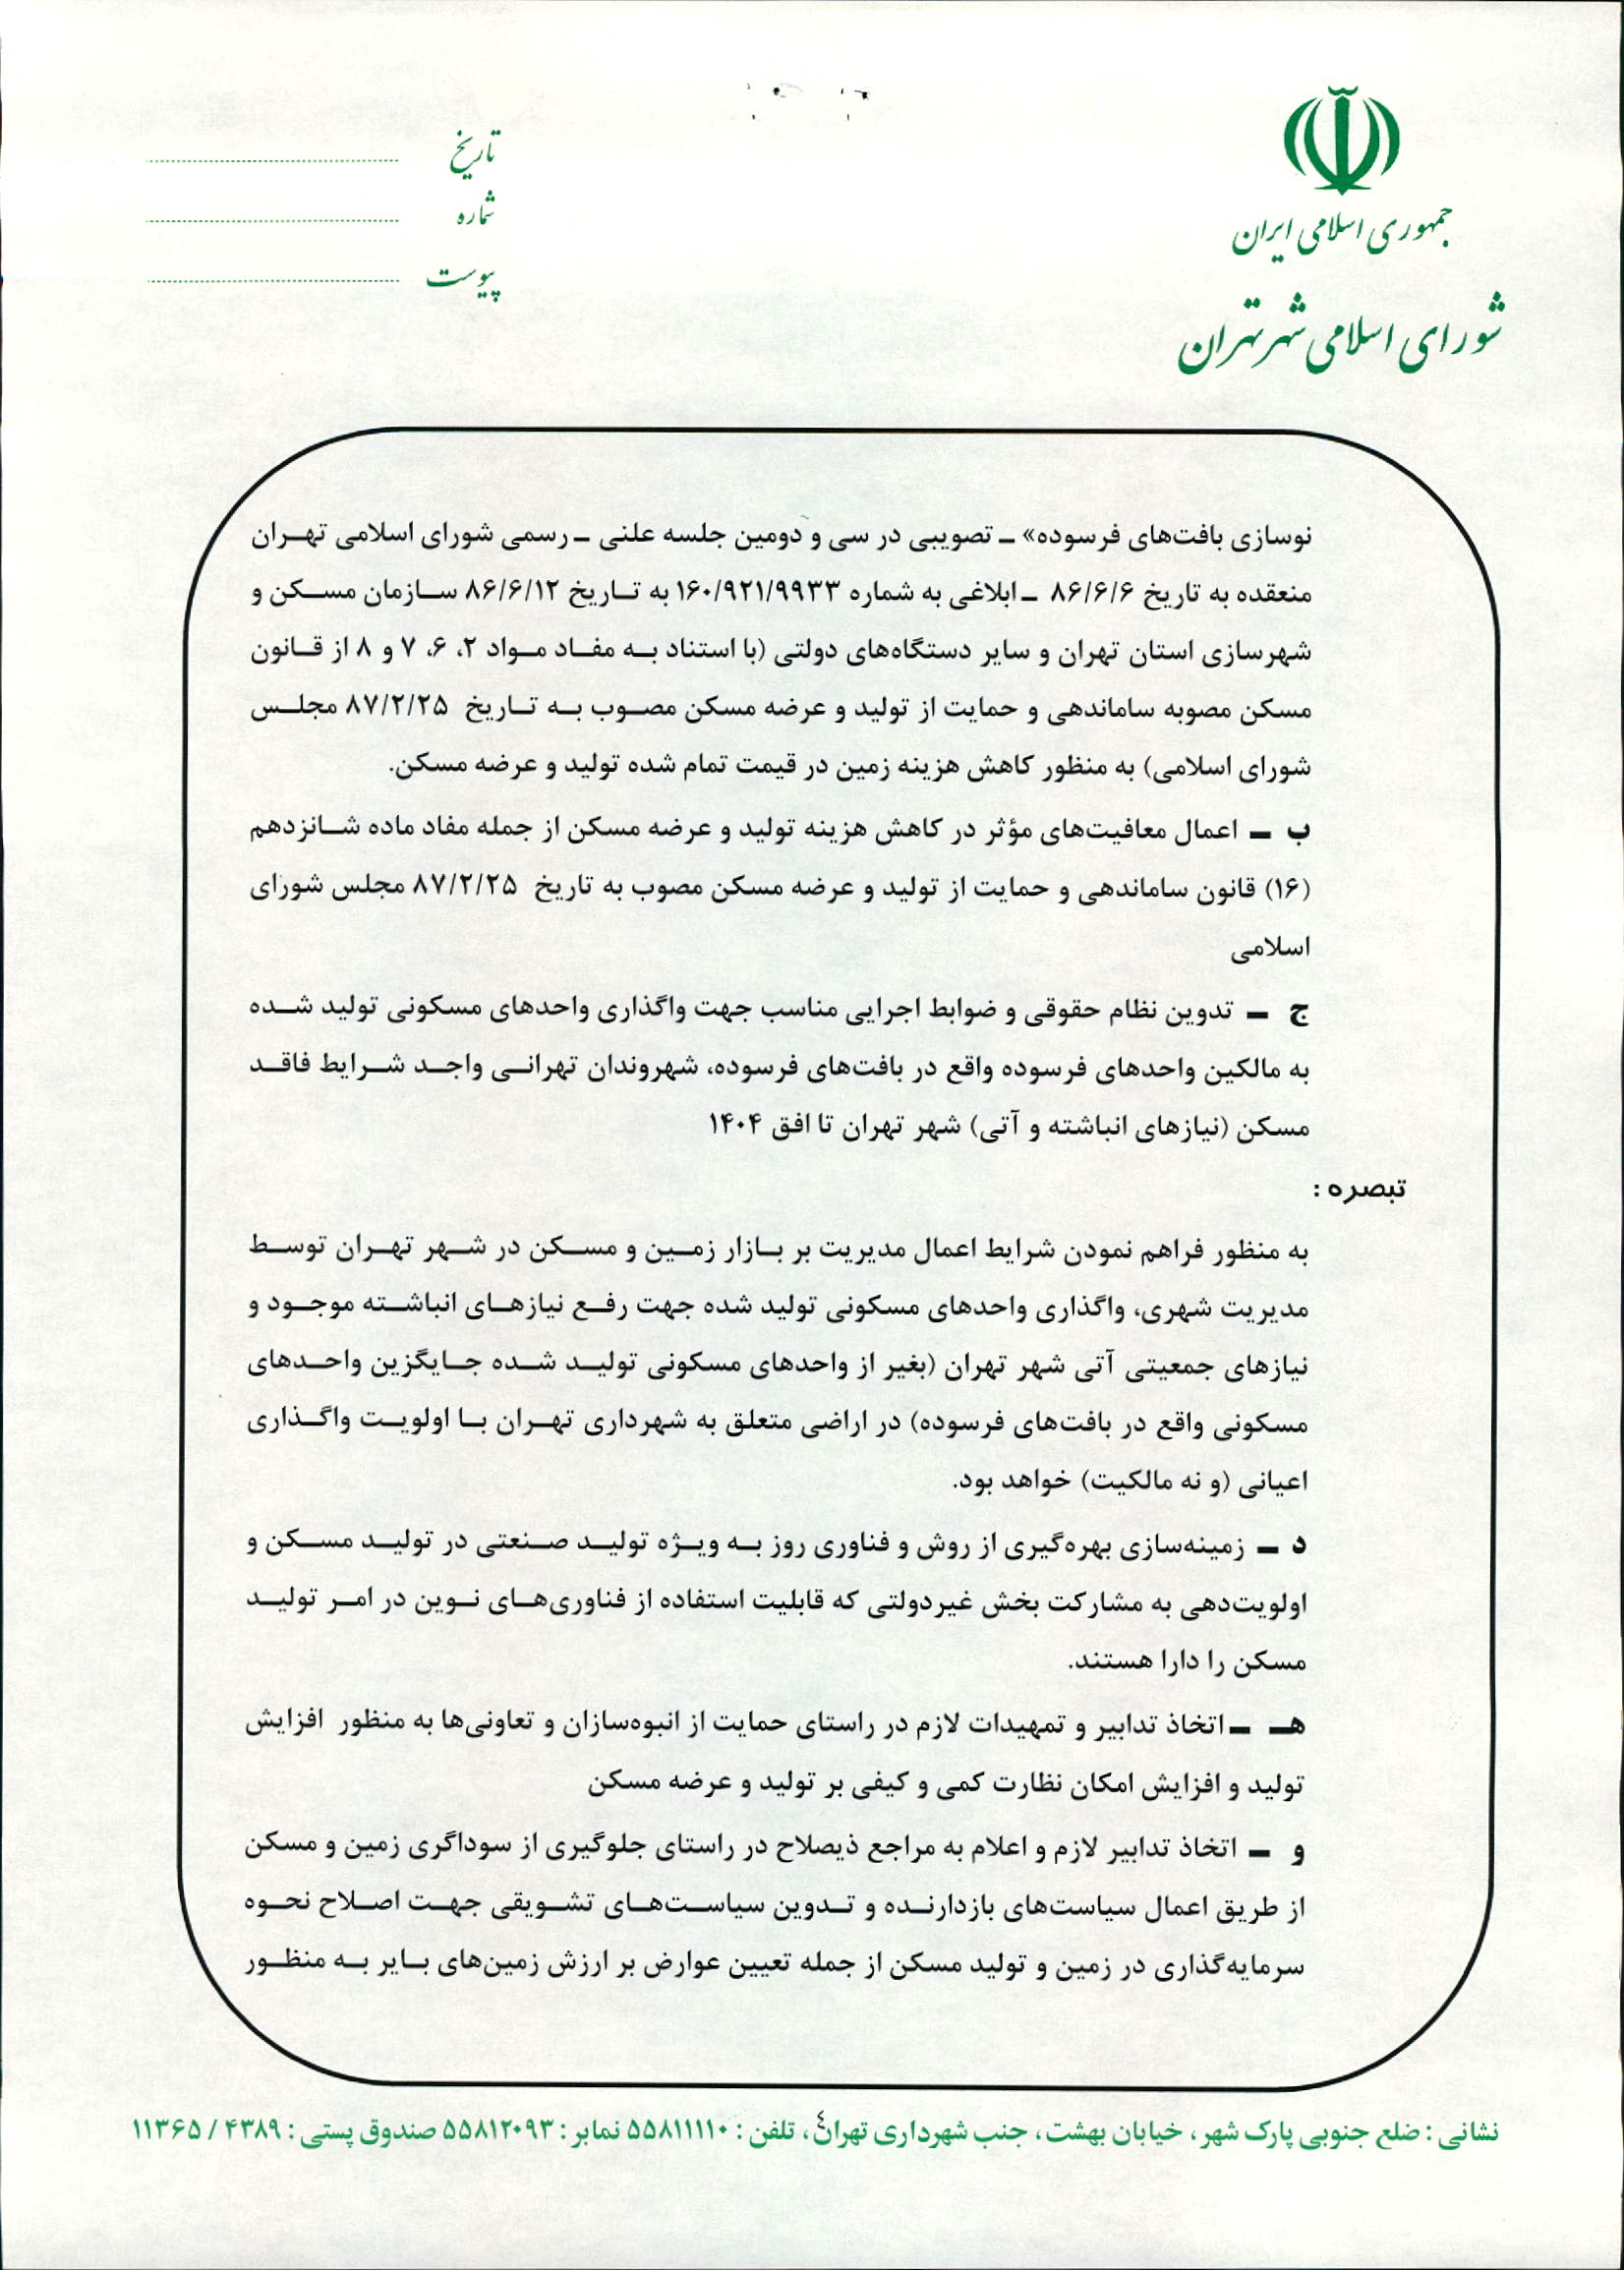 جمهوری اسلامی ایران
شورای اسلامی شهر تهران
تاریخ
شماره
پیوست
نوسازی بافت‌های فرسوده» ـ تصویبی در سی و دومین جلسه علنی ـ رسمی شورای اسلامی تهران
منعقده به تاریخ ۸۶/۶/۶ ـ ابلاغی به شماره ۱۶۰/۹۲۱/۹۹۳۳ به تاریخ ۸۶/۶/۱۲ سازمان مسکن و
شهرسازی استان تهران و سایر دستگاه‌های دولتی (با استناد به مفاد مواد ۲، ۶، ۷ و ۸ از قانون
مسکن مصوبه ساماندهی و حمایت از تولید و عرضه مسکن مصوب به تاریخ ۸۷/۲/۲۵ مجلس
شورای اسلامی) به منظور کاهش هزینه زمین در قیمت تمام شده تولید و عرضه مسکن.
ب ـ اعمال معافیت‌های مؤثر در کاهش هزینه تولید و عرضه مسکن از جمله مفاد ماده شانزدهم
(۱۶) قانون ساماندهی و حمایت از تولید و عرضه مسکن مصوب به تاریخ ۸۷/۲/۲۵ مجلس شورای
اسلامی
ج ـ تدوین نظام حقوقی و ضوابط اجرایی مناسب جهت واگذاری واحدهای مسکونی تولید شده
به مالکین واحدهای فرسوده واقع در بافت‌های فرسوده، شهروندان تهرانی واجد شرایط فاقد
مسکن (نیازهای انباشته و آتی) شهر تهران تا افق ۱۴۰۴
تبصره :
به منظور فراهم نمودن شرایط اعمال مدیریت بر بازار زمین و مسکن در شهر تهران توسط
مدیریت شهری، واگذاری واحدهای مسکونی تولید شده جهت رفع نیازهای انباشته موجود و
نیازهای جمعیتی آتی شهر تهران (بغیر از واحدهای مسکونی تولید شده جایگزین واحدهای
مسکونی واقع در بافت‌های فرسوده) در اراضی متعلق به شهرداری تهران با اولویت واگذاری
اعیانی (و نه مالکیت) خواهد بود.
د ـ زمینه‌سازی بهره‌گیری از روش و فناوری روز به ویژه تولید صنعتی در تولید مسکن و
اولویت‌دهی به مشارکت بخش غیردولتی که قابلیت استفاده از فناوری‌های نوین در امر تولید
مسکن را دارا هستند.
هـ ـ اتخاذ تدابیر و تمهیدات لازم در راستای حمایت از انبوه‌سازان و تعاونی‌ها به منظور افزایش
تولید و افزایش امکان نظارت کمی و کیفی بر تولید و عرضه مسکن
و ـ اتخاذ تدابیر لازم و اعلام به مراجع ذیصلاح در راستای جلوگیری از سوداگری زمین و مسکن
از طریق اعمال سیاست‌های بازدارنده و تدوین سیاست‌های تشویقی جهت اصلاح نحوه
سرمایه‌گذاری در زمین و تولید مسکن از جمله تعیین عوارض بر ارزش زمین‌های بایر به منظور
٤
نشانی : ضلع جنوبی پارک شهر، خیابان بهشت، جنب شهرداری تهران، تلفن : ۵۵۸۱۱۱۱۰ نمابر : ۵۵۸۱۲۰۹۳ صندوق پستی : ۴۳۸۹ / ۱۱۳۶۵